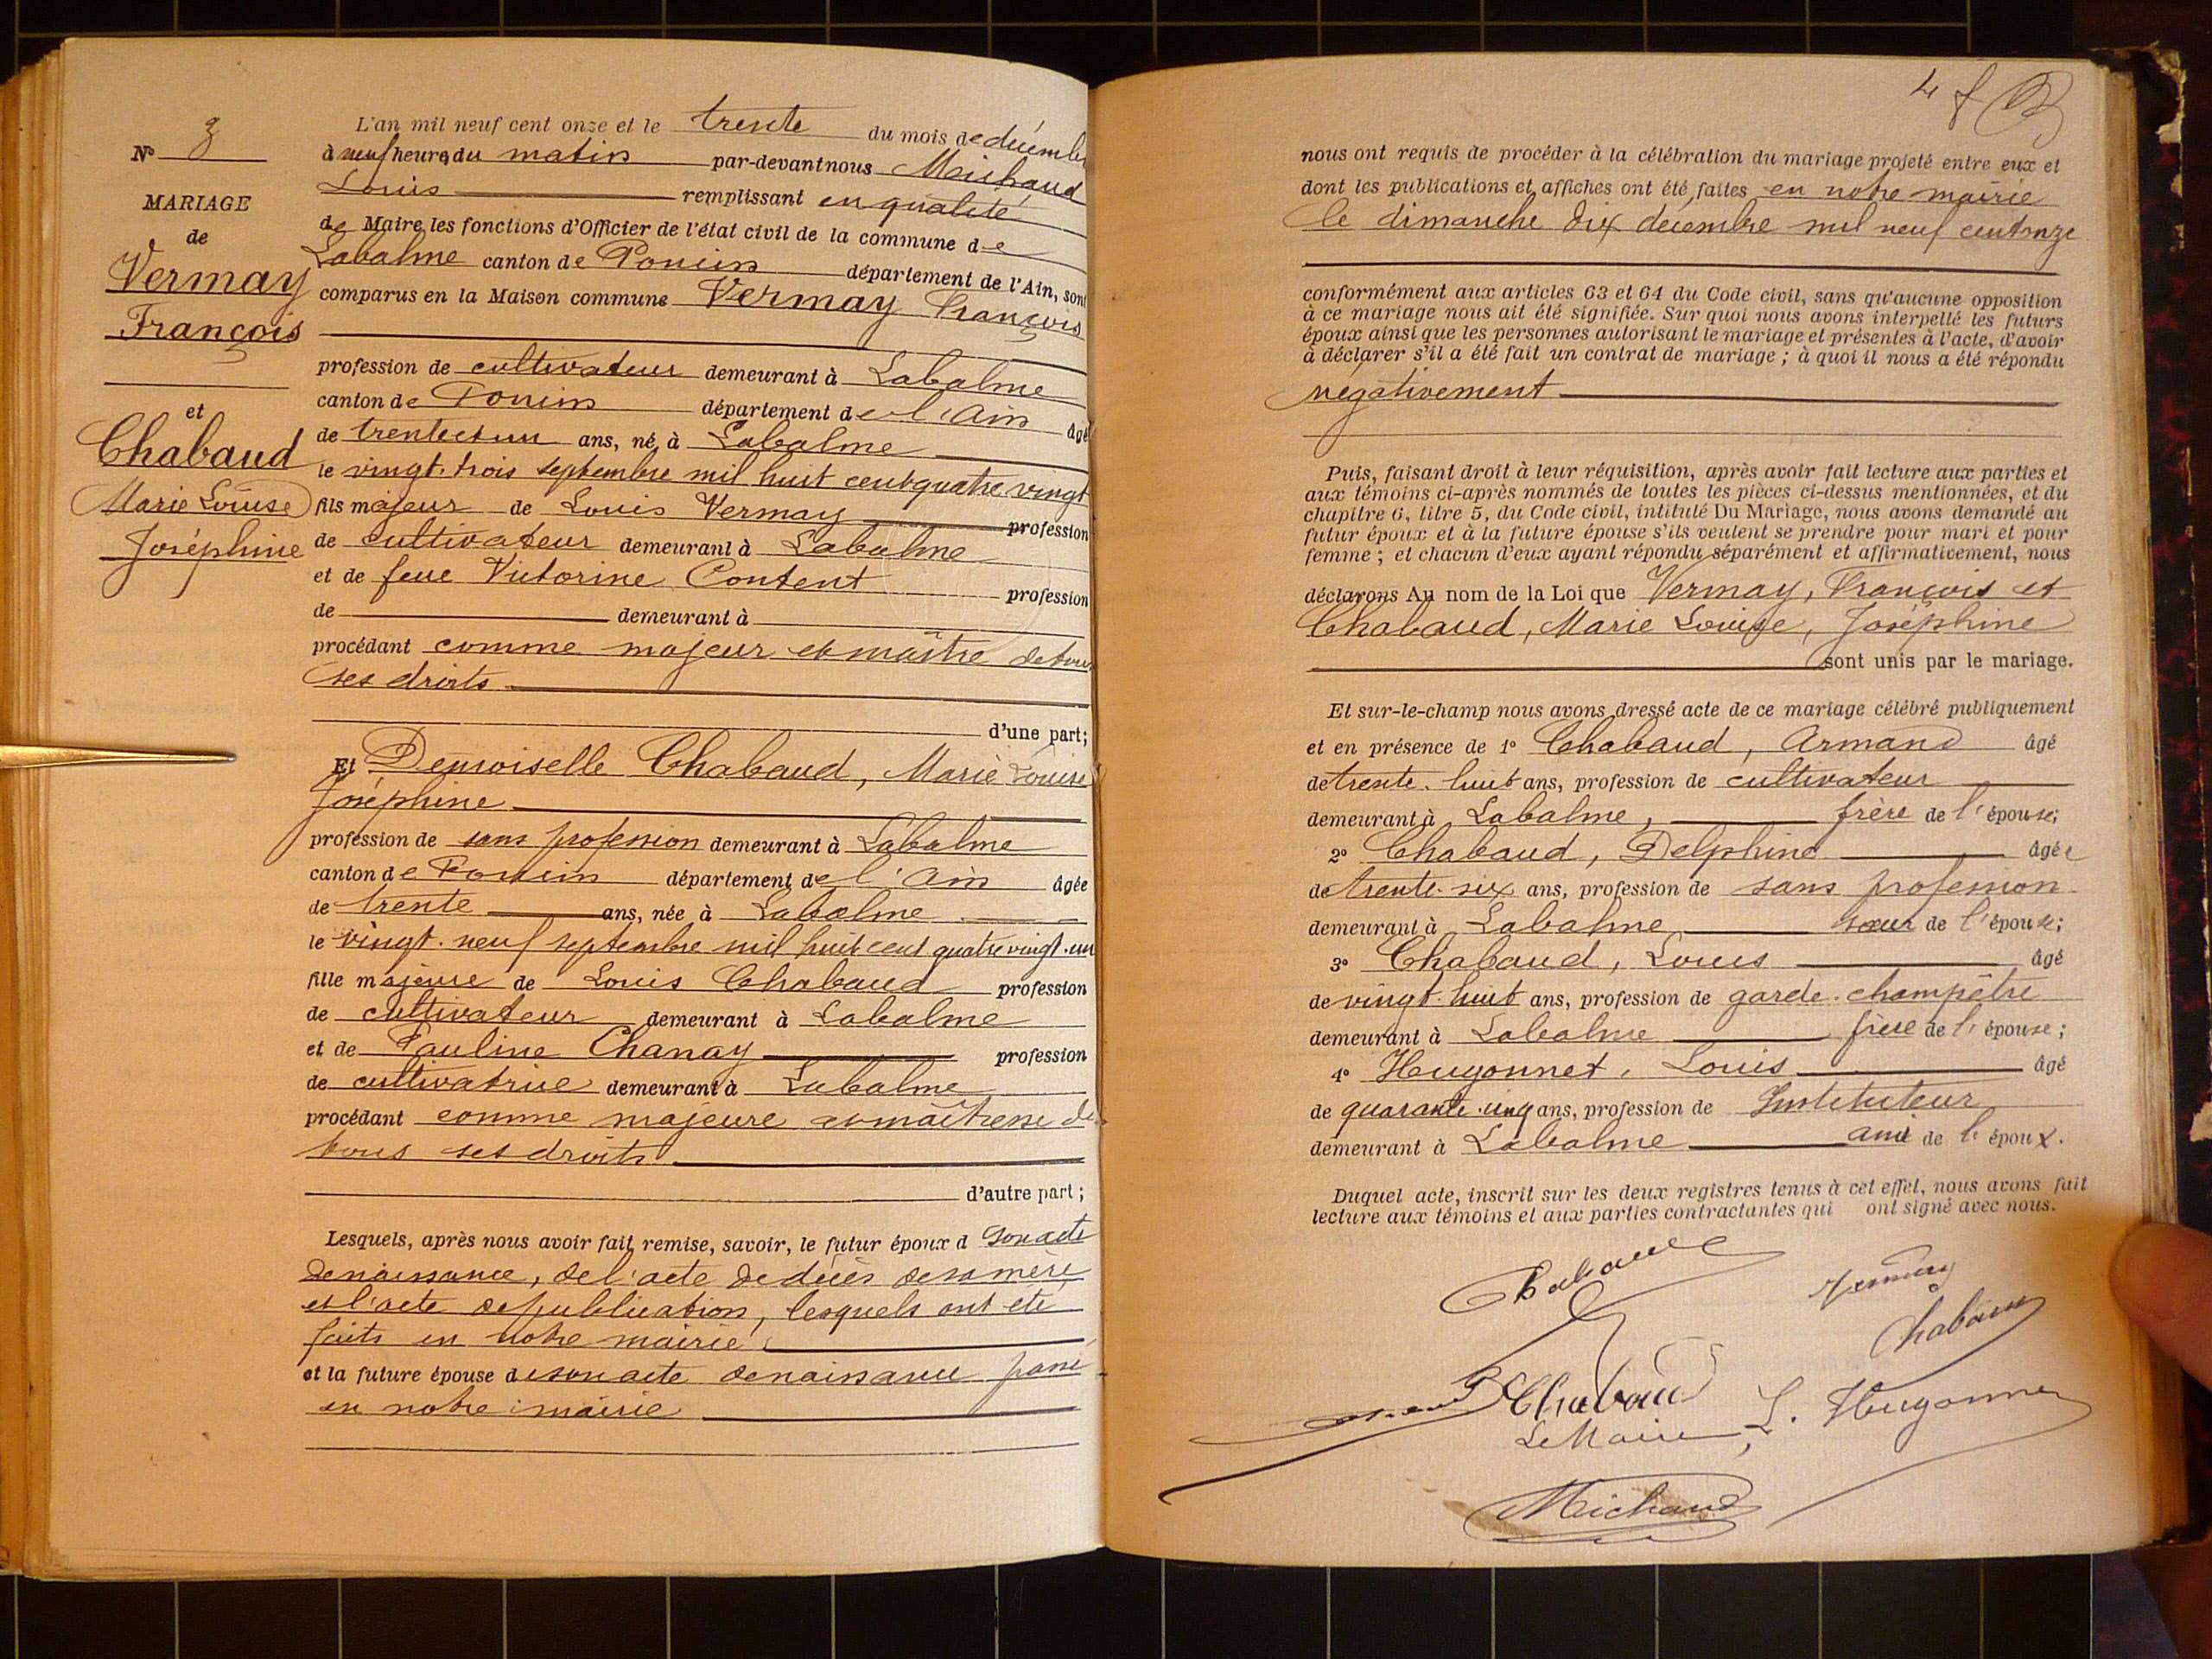 N° 3
MARIAGE
de
Vermay
François
et
Chabaud
Marie Louise
Joséphine
L'an mil neuf cent onze et le trente du mois de décembre
à neuf heures du matin par-devant nous Michaud
Louis remplissant en qualité
de Maire les fonctions d'Officier de l'état civil de la commune de
Labalme canton de Poncin département de l'Ain, sont
comparus en la Maison commune Vermay François
profession de cultivateur demeurant à Labalme
canton de Poncin département de l'Ain âgé
de trente et un ans, né à Labalme
le vingt-trois septembre mil huit cent quatre vingt
fils majeur de Louis Vermay profession
de cultivateur demeurant à Labalme
et de feue Victorine Content profession
de demeurant à
procédant comme majeur et maître de tous
ses droits
d'une part;
Et Demoiselle Chabaud, Marie Louise
Joséphine
profession de sans profession demeurant à Labalme
canton de Poncin département de l'Ain âgée
de trente ans, née à Labalme
le vingt-neuf septembre mil huit cent quatre vingt-un
fille majeure de Louis Chabaud profession
de cultivateur demeurant à Labalme
et de Pauline Chanay profession
de cultivatrice demeurant à Labalme
procédant comme majeure et maîtresse de
tous ses droits
d'autre part;
Lesquels, après nous avoir fait remise, savoir, le futur époux d son acte
de naissance, de l'acte de décès de sa mère
et l'acte de publication, lesquels ont été
faits en notre mairie
et la future épouse de son acte de naissance passé
en notre mairie
4 f
nous ont requis de procéder à la célébration du mariage projeté entre eux et
dont les publications et affiches ont été faites en notre mairie
le dimanche dix décembre mil neuf cent onze
conformément aux articles 63 et 64 du Code civil, sans qu'aucune opposition
à ce mariage nous ait été signifiée. Sur quoi nous avons interpellé les futurs
époux ainsi que les personnes autorisant le mariage et présentes à l'acte, d'avoir
à déclarer s'il a été fait un contrat de mariage; à quoi il nous a été répondu
négativement
Puis, faisant droit à leur réquisition, après avoir fait lecture aux parties et
aux témoins ci-après nommés de toutes les pièces ci-dessus mentionnées, et du
chapitre 6, titre 5, du Code civil, intitulé Du Mariage, nous avons demandé au
futur époux et à la future épouse s'ils veulent se prendre pour mari et pour
femme; et chacun d'eux ayant répondu séparément et affirmativement, nous
déclarons Au nom de la Loi que Vermay, François et
Chabaud, Marie Louise, Joséphine
sont unis par le mariage.
Et sur-le-champ nous avons dressé acte de ce mariage célébré publiquement
et en présence de 1° Chabaud, Armand âgé
de trente-huit ans, profession de cultivateur
demeurant à Labalme, frère de l'épouse;
2° Chabaud, Delphine âgée
de trente-six ans, profession de sans profession
demeurant à Labalme soeur de l'épouse;
3° Chabaud, Louis âgé
de vingt-huit ans, profession de garde-champêtre
demeurant à Labalme frère de l'épouse;
4° Hugonnet, Louis âgé
de quarante-cinq ans, profession de Instituteur
demeurant à Labalme ami de l'époux.
Duquel acte, inscrit sur les deux registres tenus à cet effet, nous avons fait
lecture aux témoins et aux parties contractantes qui ont signé avec nous.
Vermay
Chabaud
Chabaud
L. Hugonnet
Le Maire,
Michaud